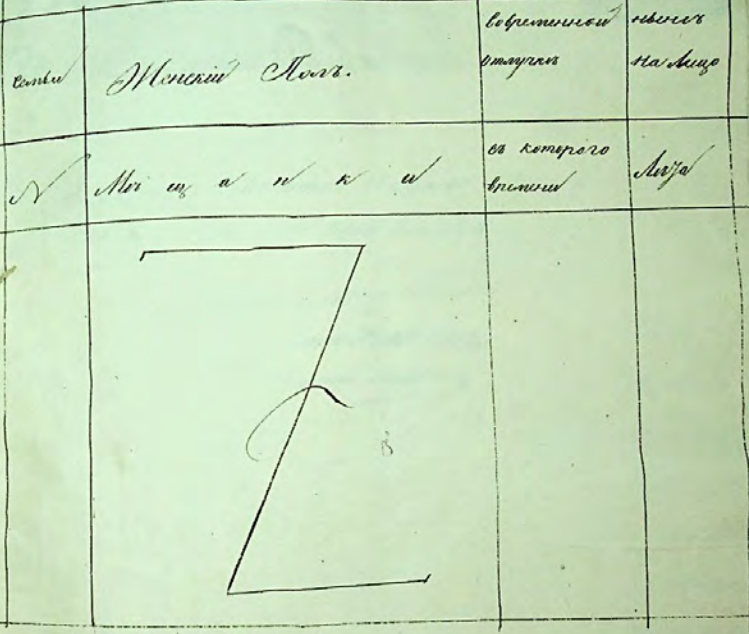 Семьи
Женскій Полъ.
во временной
отлучкѣ
нынѣ
на лицо
N
Мѣщанки
съ которого
времени
Лѣта